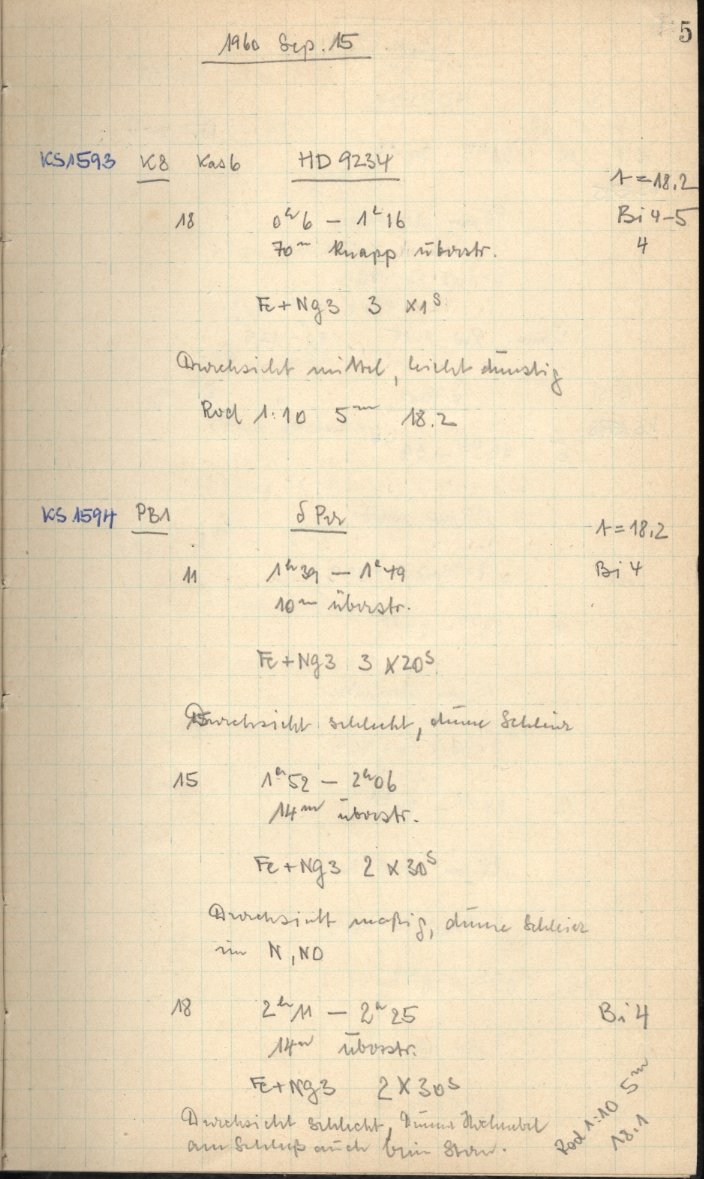 5
1960 Sep. 15
KS1593 K8 Kas6 HD 9234
t=18.2
18 0ʰ6 — 1ʰ16 Bi 4-5
70ᵐ knapp überstr. 4
Fe+Ng3 3 x1ˢ
Durchsicht mittel, leicht dunstig
Rod 1:10 5ᵐ 18.2
KS 1594 PB1 δ Per
t=18.2
11 1ʰ39 — 1ʰ49 Bi 4
10ᵐ überstr.
Fe+Ng3 3 x20ˢ
Durchsicht schlecht, dünne Schleier
15 1ʰ52 — 2ʰ06
14ᵐ überstr.
Fe+Ng3 2 x30ˢ
Durchsicht mäßig, dünne Schleier
im N, NO
18 2ʰ11 — 2ʰ25 Bi 4
14ᵐ überstr.
Fe+Ng3 2x30ˢ
Durchsicht schlecht, dünner Hochnebel
am Schluß auch beim Stern.
Rod 1:10 5ᵐ
18.1